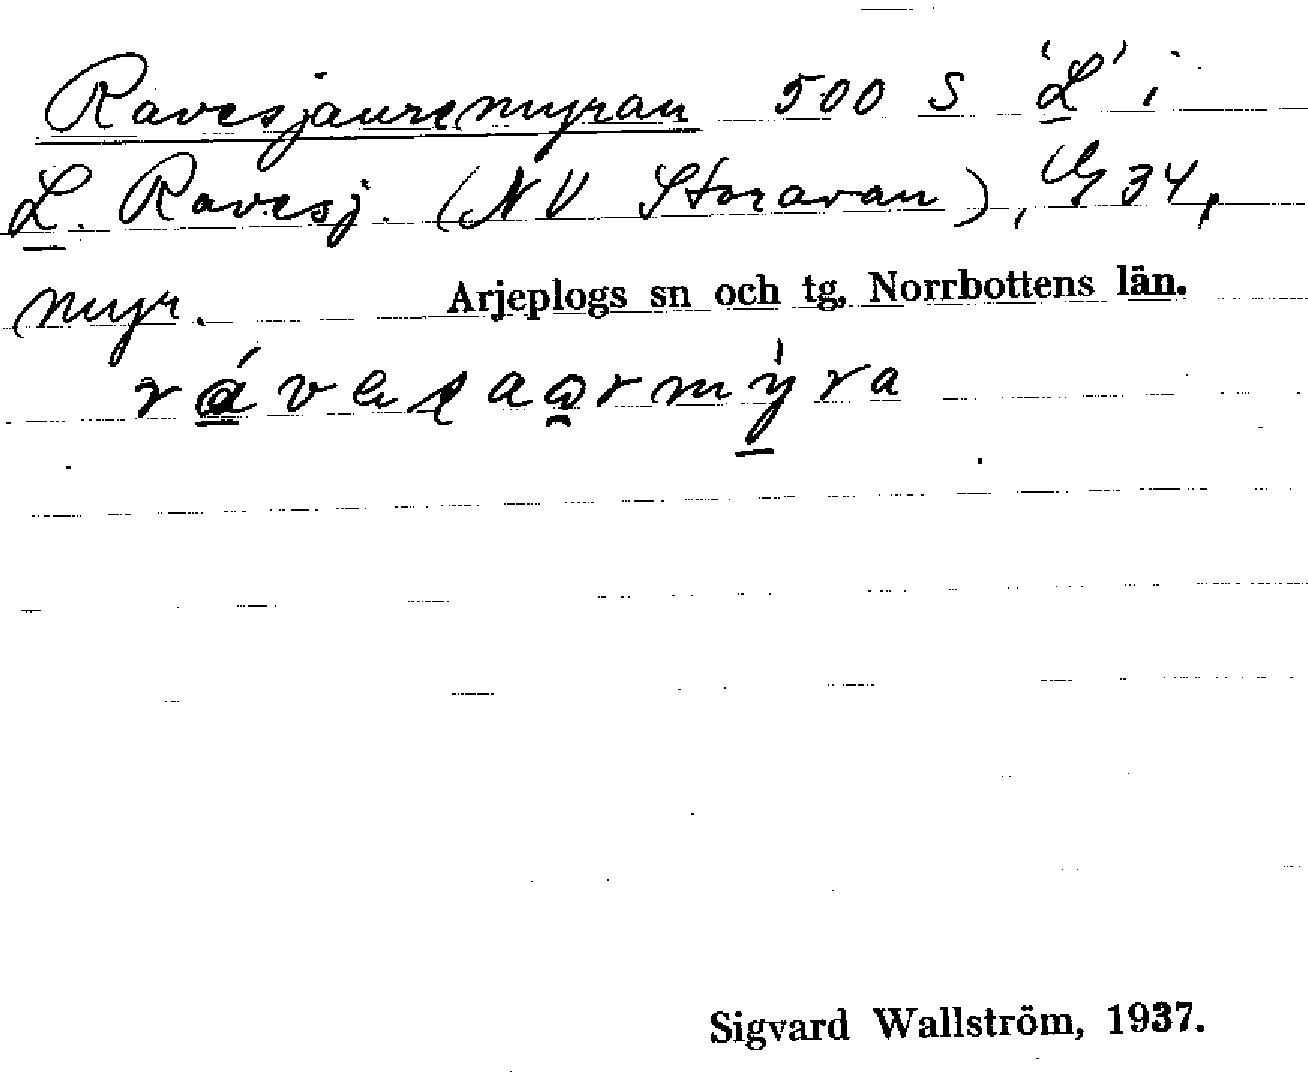 Ravesjauremyran 500 S 'L' i
L. Ravesj. (NV Storavan), G 34,
myr. Arjeplogs sn och tg, Norrbottens län.
Sigvard Wallström, 1937.